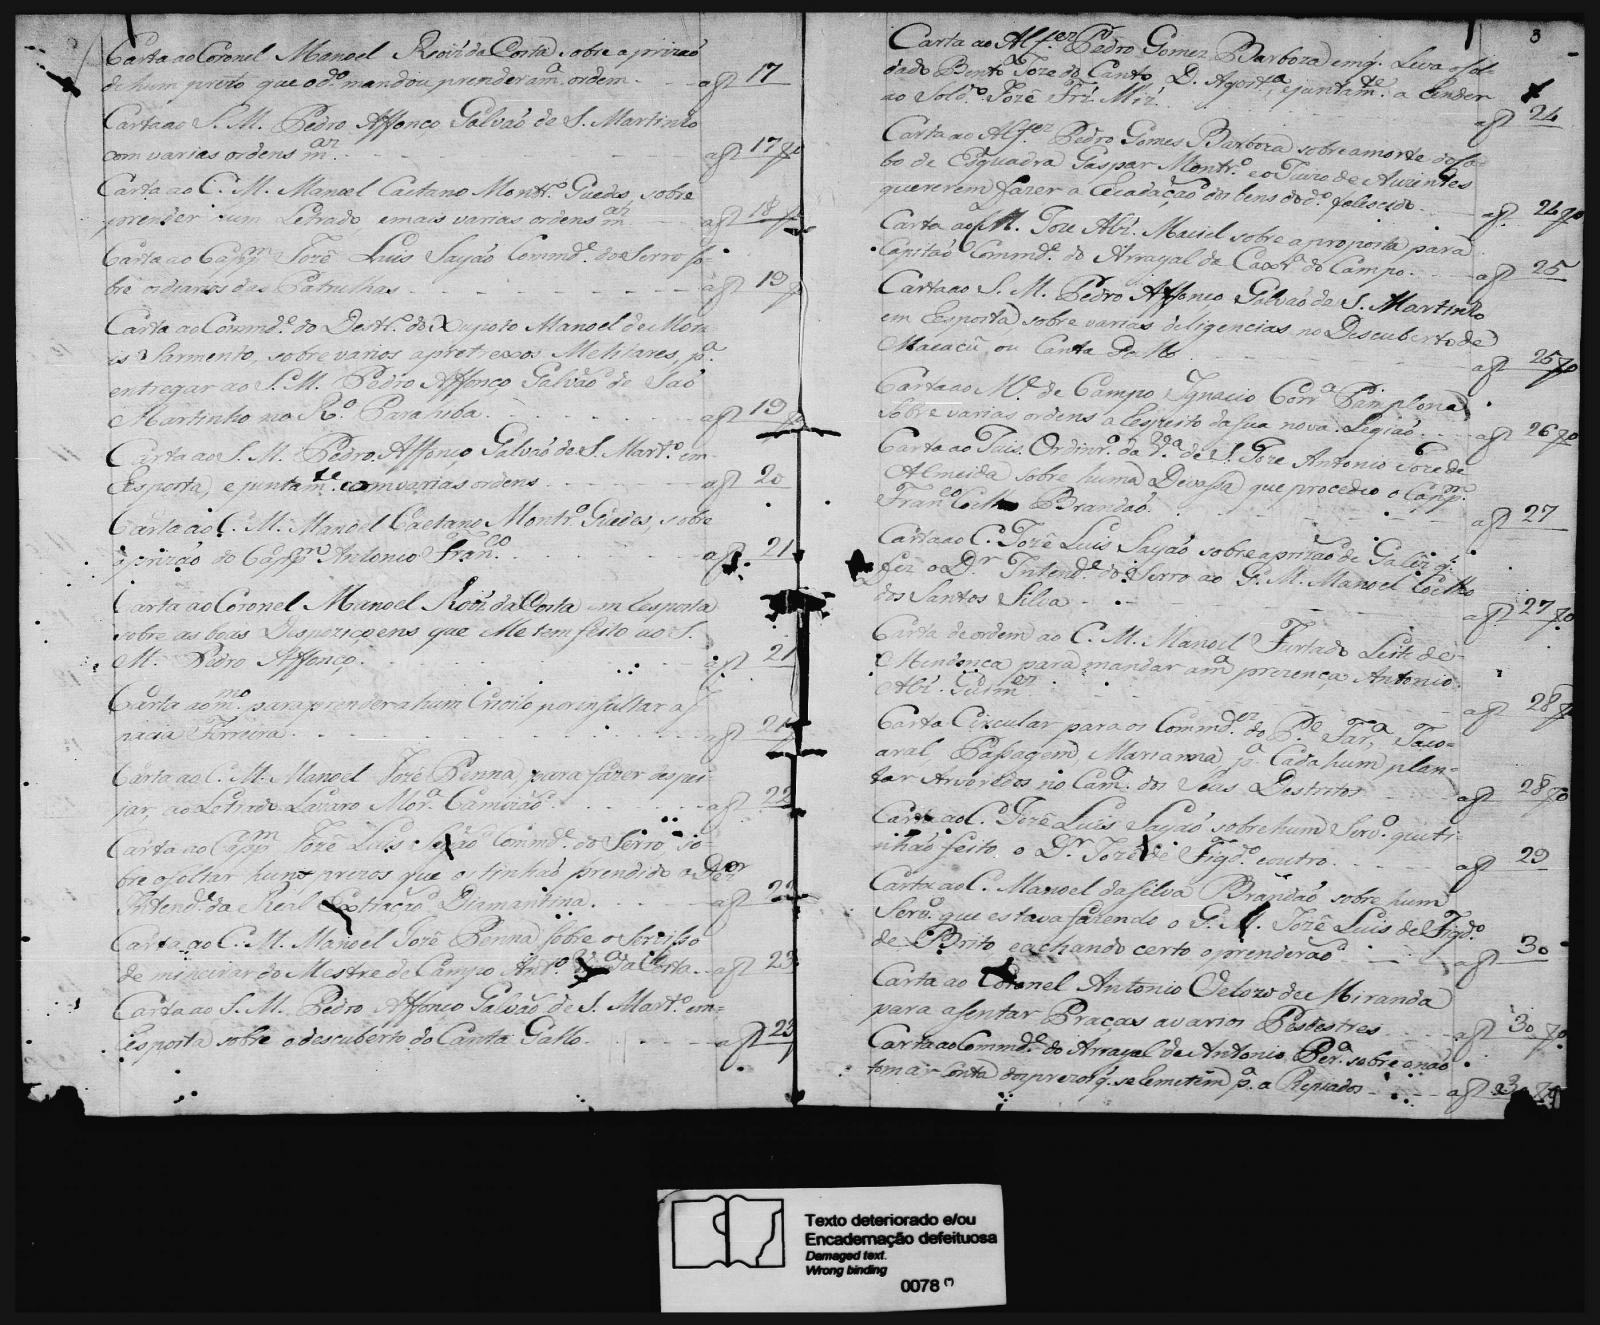 Carta ao Coronel Manoel Roiz da Costa sobre a prizaõ
de hum preto que o d.º mandou prender a m.ª ordem. a f 17
Carta ao S. M. Pedro Affonço Galvaõ de S. Martinho
com varias ordens m.as a f 17
Carta ao C. M. Manoel Caetano Montr.º Guedes, sobre
prender hum Letrado e mais varias ordens m.as a f 18
Carta ao Capp.m Jozê Luis Sayaõ Commd.e do Serro so-
bre os diarios das Patrulhas a f 19
Carta ao Commd.e do Dest.º do Xupoto Manoel de Mora
is Sarmento, sobre varios apretrexos Melitares, p.ª
entregar ao S. M. Pedro Affonço Galvaõ de Saõ
Martinho no R.º Parahiba. a f 19
Carta ao S. M. Pedro Affonço Galvaõ de S. Mart.º em
Resposta, e juntam.te com varias ordens a f 20
Carta ao C. M. Manoel Caetano Montr.º Guedes, sobre
a prizaõ do Capp.m Antonio Fran.co a f 21
Carta ao Coronel Manoel Roiz da Costa em Resposta
sobre as boas Dispoziçoens que Me tem feito ao S.
M. Pedro Affonço. a f 21
Carta ao m.mo para prender a hum Crioilo, por insultar a
nacia Ferreira. a f 21
Carta ao C. M. Manoel Jozê Penna para fazer despe
jar, ao Letrado Lavaro Mor.ª Camoiaõ a f 22
Carta ao Capp.m Jozê Luis Sayaõ Commd.e do Serro, so-
bre o soltar huns prezos que os tinhaõ prendido o Dez.or
Intend.e da Real Extraçaõ Diamantina. a f 22
Carta ao C. M. Manoel Jozê Penna sobre o Servisso
de minerar do Mestre de Campo Ant.º da Costa a f 23
Carta ao S. M. Pedro Affonço Galvaõ de S. Mart.º em
Resposta sobre o descuberto do Canta Gallo. a f 23
3
Carta ao Alf.ez Pedro Gomez Barboza em q. Leva o sol-
dado Bento Joze do Canto, D. Agost.ª, e juntam.te a render
ao Sold.º Jozê Frz. a f 24
Carta ao Alf.ez Pedro Gomes Barboza sobre a morte do Ca-
bo de Esquadra Gaspar Montr.º e o Juizo de Auzentes
quererem fazer a Recadaçaõ dos bens do d.º falescido a f 24
Carta ao C. M. Joze Abi. Maciel sobre a proposta para
Capitaõ Commd.e do Arrayal da Cax.ª do Campo. a f 25
Carta ao S. M. Pedro Affonço Galvaõ de S. Martinho
em Resposta sobre varias deligencias no Descuberto de
Macacú, ou Canta Gallo a f 25
Carta ao M.e de Campo Ignacio Corr.ª Pamplona
sobre varias ordens a Respeito da sua nova Legiaõ. a f 26
Carta ao Juis Ordinr.º da V.ª de S. Joze Antonio Joze de
Almeida sobre huma Devassa que procedeo o Capp.m
Fran.co Coelho Brandaõ. a f 27
Carta ao C. Jozê Luis Sayaõ sobre a prizaõ de Galez q.
fez o D.r Intend.e do Serro ao G. M. Manoel Coelho
dos Santos Silva a f 27
Carta de ordem ao C. M. Manoel Furtado Leite de
Mendonça para mandar a m.ª prezença Antonio
Abi. Guim.es a f 28
Carta Circular para os Commd.es do P.e Far.ª, Taco-
aral, Passagem, Marianna p.ª Cada hum plan-
tar Arvoredos no Cam.º dos seus Destritos a f 28
Carta ao C. Jozê Luis Sayaõ sobre hum Serv.º que ti-
nhaõ feito o D.r Jozê de Figd.º e outro. a f 29
Carta ao C. Manoel da Silva Brandaõ sobre hum
Serv.º que estava fazendo o G. M. Jozê Luis de Figd.º
de Brito e achando certo o prenderaõ a f 30
Carta ao Coronel Antonio Velozo de Miranda
para asentar Praças a varios Pedestres a f 30
Carta ao Commd.e do Arrayal de Antonio Per.ª sobre o naõ
tomar Conta dos prezos q. se Remetem p.ª a Repuados a f 3
Texto deteriorado e/ou
Encadernação defeituosa
Damaged text.
Wrong binding
0078